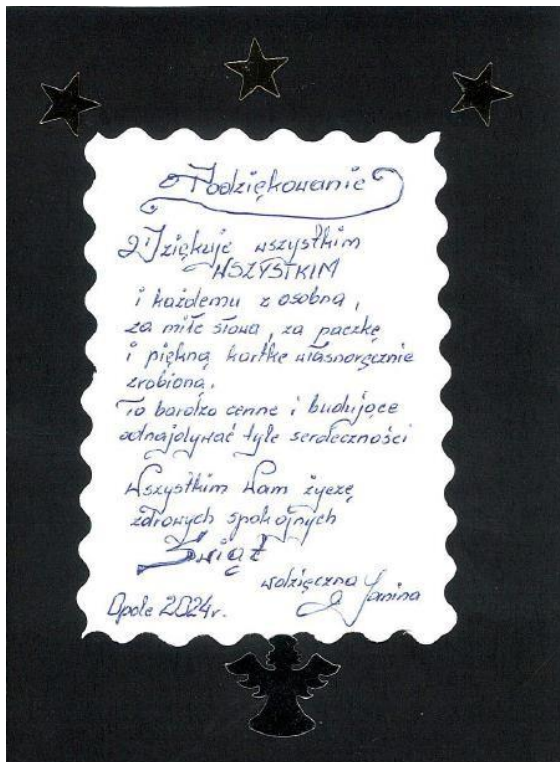 Podziękowanie
Dziękuję wszystkim
WSZYSTKIM
i każdemu z osobna,
za miłe słowa, za paczkę
i piękną kartkę własnoręcznie
zrobioną.
To bardzo cenne i budujące
odnajdywać tyle serdeczności
Wszystkim Wam życzę
zdrowych spokojnych
Świąt
wdzięczna Janina
Opole 2024r.